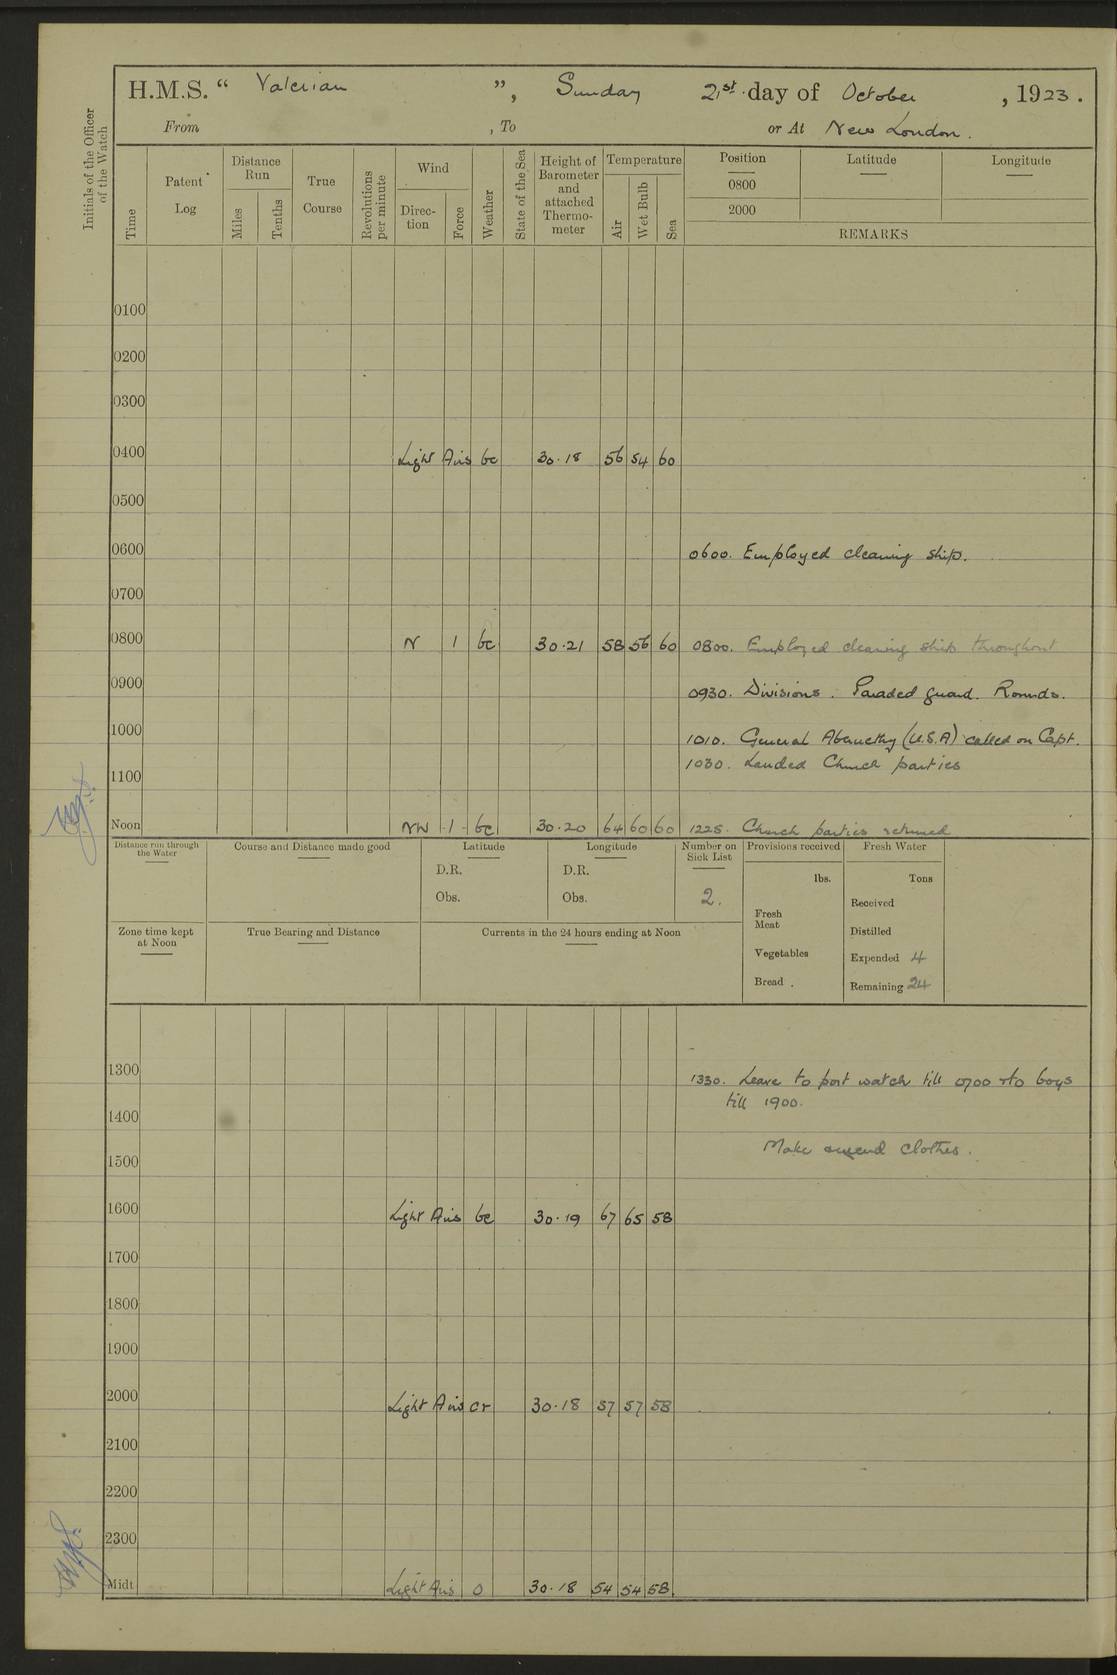 H.M.S. “ Valerian ”, Sunday 21st. day of October , 1923.
From , To or At New London.
Initials of the Officer of the Watch
Time
Patent Log
Distance Run
Miles
Tenths
True Course
Revolutions per minute
Wind
Direction
Force
Weather
State of the Sea
Height of Barometer and attached Thermometer
Temperature
Air
Wet Bulb
Sea
Position
0800
2000
Latitude
Longitude
REMARKS
0100
0200
0300
0400 Light Airs bc 30.18 56 54 60
0500
0600 0600. Employed cleaning ship.
0700
0800 N 1 bc 30.21 58 56 60 0800. Employed cleaning ship throughout
0900 0930. Divisions. Paraded guard. Rounds.
1000 1010. General Abernethy (U.S.A) called on Capt.
1030. Landed Church parties
1100
Noon NW 1 bc 30.20 64 60 60 1225. Church parties returned
Distance run through the Water
Course and Distance made good
Latitude
D.R.
Obs.
Longitude
D.R.
Obs.
Number on Sick List
2.
Provisions received
lbs.
Fresh Meat
Vegetables
Bread .
Fresh Water
Tons
Received
Distilled
Expended 4
Remaining 24
Zone time kept at Noon
True Bearing and Distance
Currents in the 24 hours ending at Noon
1300 1330. Leave to port watch till 0700 & to boys
till 1900.
1400
Make & mend clothes.
1500
1600 Light Airs bc 30.19 67 65 58
1700
1800
1900
2000 Light Airs cr 30.18 57 57 58
2100
2200
2300
Midt. Light Airs o 30.18 54 54 58.